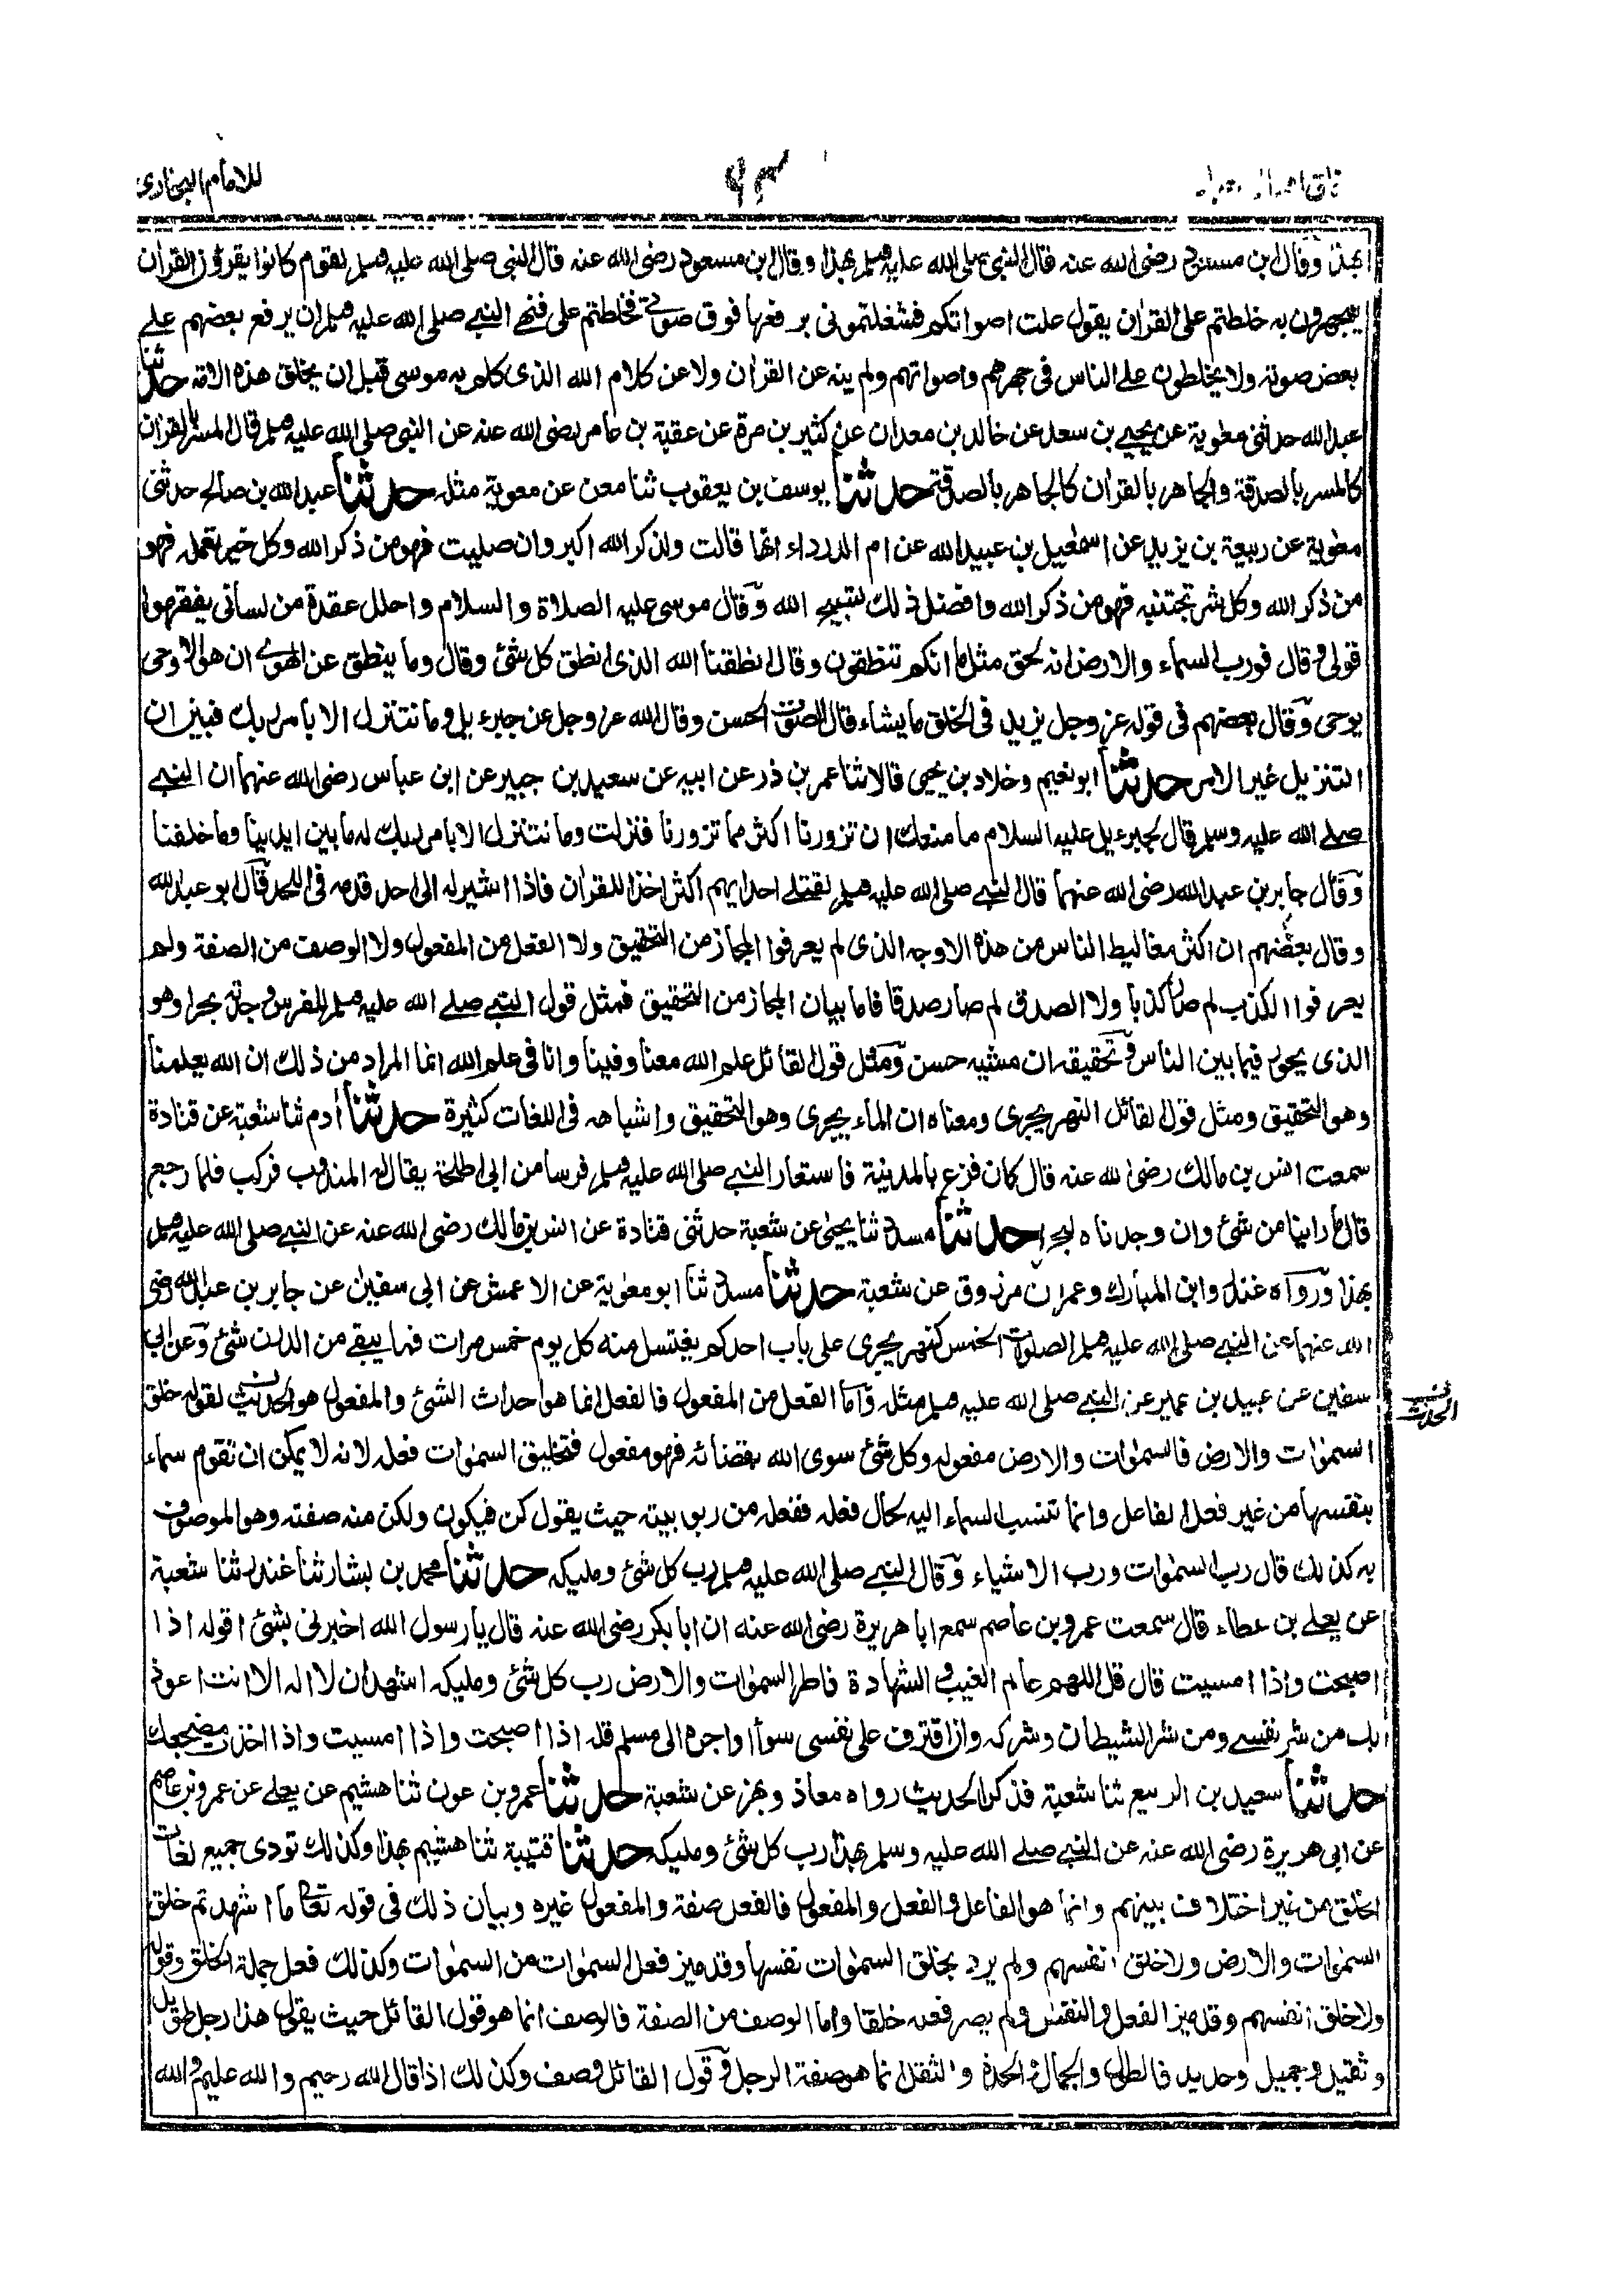 خلق افعال العباد
٩٣
للامام البخارى
بهذا وقال ابن مسعود رضى الله عنه قال النبى صلى الله عليه وسلم بهذا وقال ابن مسعود رضى الله عنه قال النبى صلى الله عليه وسلم لقوم كانوا يقرؤن القران
يجهرون به خلطتم على القران يقول علت اصواتكم فشغلتمونى برفعها فوق صوتى فخلطتم على فنهى النبى صلى الله عليه وسلم ان يرفع بعضهم على
بعض صوته ولا يخلطون على الناس فى جهرهم واصواتهم ولم ينه عن القران ولا عن كلام الله الذى كلم به موسى قبل ان يخلق هذه الامة حدثنا
عبد الله حدثنى معوية عن يحيى بن سعد عن خالد بن معدان عن كثير بن مرة عن عقبة بن عامر رضى الله عنه عن النبى صلى الله عليه وسلم قال المسر بالقران
كالمسر بالصدقة والجاهر بالقران كالجاهر بالصدقة حدثنا يوسف بن يعقوب ثنا معن عن معوية مثله حدثنا عبد الله بن صالح حدثنى
معوية عن ربيعة بن يزيد عن اسمعيل بن عبيد الله عن ام الدرداء انها قالت ولذكر الله اكبر وان صليت فهو من ذكر الله وكل خير تعمله فهو
من ذكر الله وكل شر تجتنبه فهو من ذكر الله وافضل ذلك تسبيح الله وقال موسى عليه الصلاة والسلام واحلل عقدة من لسانى يفقهوا
قولى وقال فورب السماء والارض انه لحق مثل ما انكم تنطقون وقال انطقنا الله الذى انطق كل شئ وقال وما ينطق عن الهوى ان هو الا وحى
يوحى وقال بعضهم فى قوله عز وجل يزيد فى الخلق ما يشاء قال الصوت الحسن وقال الله عز وجل عن جبرءيل وما نتنزل الا بامر ربك فبين ان
التنزيل غير الامر حدثنا ابو نعيم وخلاد بن يحيى قالا ثنا عمر بن ذر عن ابيه عن سعيد بن جبير عن ابن عباس رضى الله عنهما ان النبى
صلى الله عليه وسلم قال لجبرءيل عليه السلام ما منعك ان تزورنا اكثر مما تزورنا فنزلت وما نتنزل الا بامر ربك له ما بين ايدينا وما خلفنا
وقال جابر بن عبد الله رضى الله عنهما قال النبى صلى الله عليه وسلم لقتلى احد ايهم اكثر اخذا للقران فاذا اشير له الى احد قدمه فى اللحد قال ابو عبد الله
وقال بعضهم ان اكثر مغاليط الناس من هذه الاوجه الذى لم يعرفوا المجاز من التحقيق ولا الفعل من المفعول ولا الوصف من الصفة ولم
يعرفوا الكذب لم صار كذبا ولا الصدق لم صار صدقا فاما بيان المجاز من التحقيق فمثل قول النبى صلى الله عليه وسلم للفرس وجدته بحرا وهو
الذى يجوز فيما بين الناس وتحقيقه ان مشيه حسن ومثل قول القائل علم الله معنا وفينا وانا فى علم الله انما المراد من ذلك ان الله يعلمنا
وهو التحقيق ومثل قول القائل النهر يجرى ومعناه ان الماء يجرى وهو التحقيق واشباهه فى اللغات كثيرة حدثنا أدم ثنا شعبة عن قتادة
سمعت انس بن مالك رضى الله عنه قال كان فزع بالمدينة فاستعار النبى صلى الله عليه وسلم فرسا من ابى طلحة يقال له المندوب فركب فلما رجع
قال ما راينا من شئ وان وجدناه لبحرا حدثنا مسدد ثنا يحيى عن شعبة حدثنى قتادة عن انس بن مالك رضى الله عنه عن النبى صلى الله عليه وسلم
بهذا ورواه غندر وابن المبارك وعمرو بن مرزوق عن شعبة حدثنا مسدد ثنا ابو معوية عن الاعمش عن ابى سفين عن جابر بن عبد الله رضى
الله عنهما عن النبى صلى الله عليه وسلم الصلوات الخمس كنهر يجرى على باب احدكم يغتسل منه كل يوم خمس مرات فما يبقى من الدرن شئ وعن ابى
سفين عن عبيد بن عمير عن النبى صلى الله عليه وسلم مثله واما الفعل من المفعول فالفعل انما هو احداث الشئ والمفعول هو الحدث لقوله خلق
الحدث
السموات والارض فالسموات والارض مفعوله وكل شئ سوى الله بقضائه فهو مفعول فتخليق السموات فعله لانه لا يمكن ان تقوم سماء
بنفسها من غير فعل الفاعل وانما تنسب السماء اليه لحال فعله ففعله من ربوبيته حيث يقول كن فيكون ولكن منه صفته وهو الموصوف
به كذلك قال رب السموات ورب الاشياء وقال النبى صلى الله عليه وسلم رب كل شئ ومليكه حدثنا محمد بن بشار ثنا غندر ثنا شعبة
عن يعلى بن عطاء قال سمعت عمرو بن عاصم سمع ابا هريرة رضى الله عنه ان ابا بكر رضى الله عنه قال يا رسول الله اخبرنى بشئ اقوله اذا
اصبحت واذا امسيت قال قل اللهم عالم الغيب والشهادة فاطر السموات والارض رب كل شئ ومليكه اشهد ان لا اله الا انت اعوذ
بك من شر نفسى ومن شر الشيطان وشركه وان اقترف على نفسى سوأ او اجره الى مسلم قله اذا اصبحت واذا امسيت واذا اخذت مضجعك
حدثنا سعيد بن الربيع ثنا شعبة فذكر الحديث رواه معاذ وبهز عن شعبة حدثنا عمرو بن عون ثنا هشيم عن يعلى عن عمرو بن عاصم
عن ابى هريرة رضى الله عنه عن النبى صلى الله عليه وسلم بهذا رب كل شئ ومليكه حدثنا قتيبة ثنا هشيم بهذا وكذلك تودى جميع لغات
الخلق من غير اختلاف بينهم وانما هو الفاعل والفعل والمفعول فالفعل صفة والمفعول غيره وبيان ذلك فى قوله تعالى ما اشهدتم خلق
السموات والارض ولا خلق انفسهم ولم يرد بخلق السموات نفسها وقد ميز فعل السموات من السموات وكذلك فعل جملة الخلق وقوله
ولا خلق انفسهم وقد ميز الفعل والنفس ولم يصر فعله خلقا واما الوصف من الصفة فالوصف انما هو قول القائل حيث يقول هذا رجل طويل
وثقيل وجميل وحديد فالطول والجمال والحدة والثقل انما هو صفة الرجل وقول القائل وصف وكذلك اذا قال الله رحيم والله عليم والله